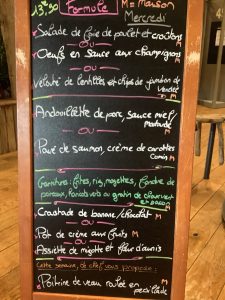 13€50 Formule M = Maison
Mercredi
Salade de foie de poulet et croûtons
ou
Oeufs en Sauce aux champignons M
ou
Velouté de lentilles et chips de jambon de
Vendée M
Andouillette de porc, sauce miel/
moutarde
ou
Pavé de saumon, crème de carottes
Cumin M
Garnitures: frites, riz, mogettes, fondue de
poireaux, haricots verts ou gratin de
Croustade de banane/chocolat M
ou
Pot de crème aux fruits M
ou
Assiette de mizotte et fleur d'aunis
Cette semaine, le chef vous propose:
Poitrine de veau roulée en
persillade